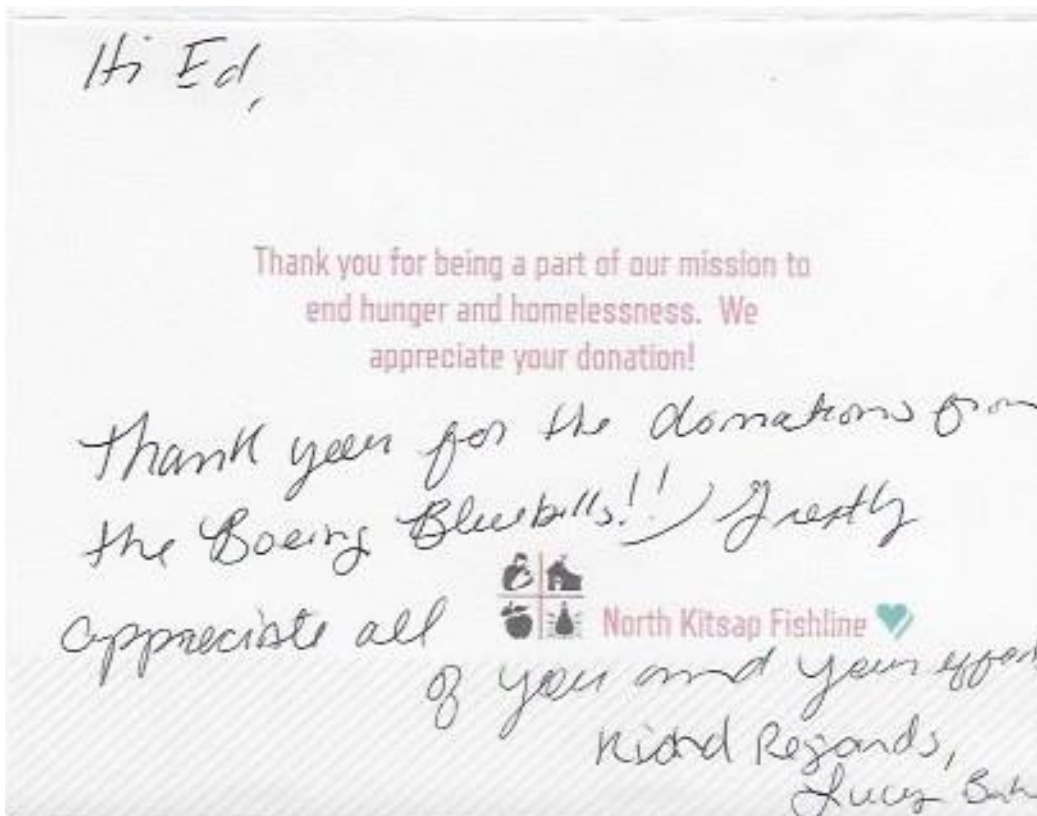 Hi Ed,
Thank you for being a part of our mission to
end hunger and homelessness. We
appreciate your donation!
Thank you for the donations from
the Boeing Bluebills!! Greatly
appreciate all
North Kitsap Fishline
of you and your
Kind Regards,
Lucy